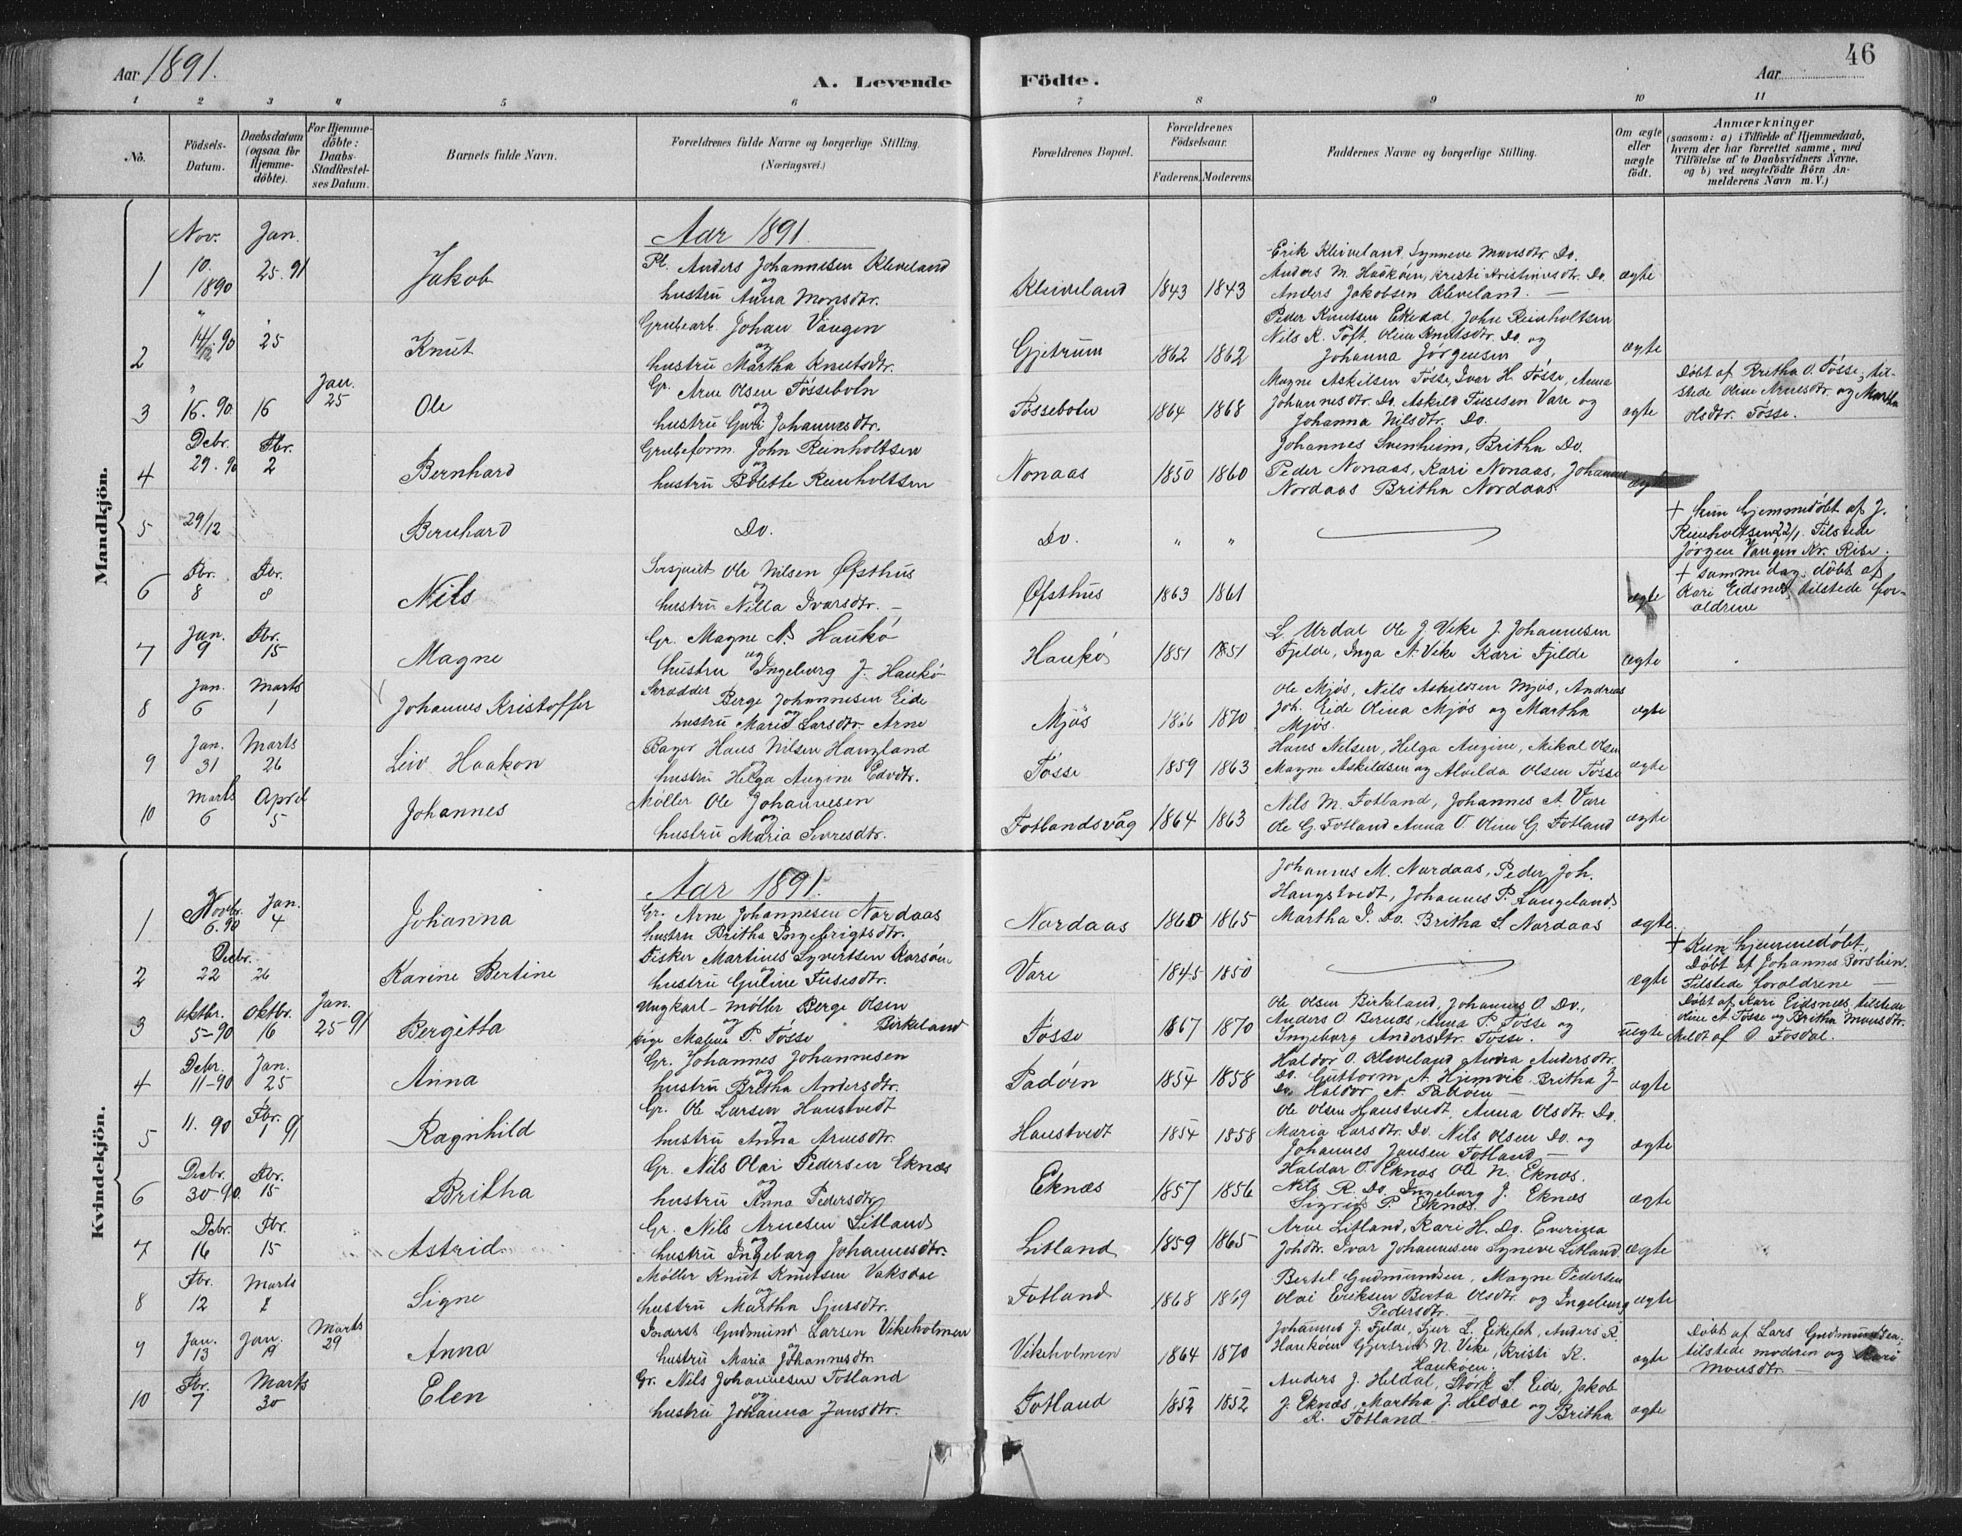 Aar 1891.
A. Levende Födte.
Aar
46
1 2 3 4 5 6 7 8 9 10 11
No.
Födsels-Datum.
Daabsdatum (ogsaa for Hjemme-döbte).
For Hjemme-döbte: Daabs-Stadfæstel-ses Datum.
Barnets fulde Navn.
Forældrenes fulde Navne og borgerlige Stilling. (Næringsvei.)
Forældrenes Bopæl.
Forældrenes Födselsaar.
Faderens. Moderens.
Faddernes Navne og borgerlige Stilling.
Om ægte eller uægte födt.
Anmærkninger
(saasom: a) i Tilfælde af Hjemmedaab, hvem der har forrettet samme, med Tilföielse af to Daabsvidners Navne, og b) ved uægtefödte Börn Anmelderens Navn m. V.)
Mandkjön.
Aar 1891.
Nov. Jan.
1 10. 1890 25.91 Jakob
Pl. Anders Johannesen Kleveland
og
hustru Anna Monsdtr.
Kleiveland 1843 1843
Erik Kleiveland, Synneve Monsdtr. Do.
Anders M. Haukøen, Kristi Kristinusdtr. Do.
Anders Jakobsen Kleveland. —
ægte
2 14/12 90 25 Knut
Grubearb. Johan Vangen
og
hustru Martha Knutsdtr.
Gjetrum 1862 1862
Peder Knutsen Ekedal, John Reinholtsen
Nils K. Toft, Olina Knutsdtr. Do. og
Johanna Jørgensen
ægte
3 16.90 16 Jan. 25 Ole
Gr. Arne Olsen Tösseboln
og
hustru Guri Johannesdtr.
Tösseboln 1864 1868
Magne Askilsen Tösse, Ivar H. Tösse, Anna
Johannesdtr. Do. Askild Vare og
Johanna Nilsdtr. Do.
ægte
Döbt af Britha O. Tösse, til-
stede Oline Arnesdtr. og Martha
Olsdtr. Tösse.
4 Debr. 29.90 Fbr. 2 Bernhard
Grubeform. John Reinholtsen
og
hustru Bolette Reinholtsen
Nonaas 1850 1860
Johannes Svenheim, Britha Do.
Peder Nonaas, Kari Nonaas, Johannes
Nordaas Britha Nordaas.
ægte
5 29/12 Bernhard
Do.
Do. " "
+ kun hjemmedöbt af J.
Reinholtsen 22/1. Tilstede
Jørgen Vangen Nr. Rise.
6 Fbr. 8 Fbr. 8 Nils
Sersjant Ole Nilsen Øfsthus
og
hustru Nilla Ivarsdtr. —
Øfsthus 1863 1861
ægte
+ samme dag, döbt af
Kari Eidsnes, tilstede for-
ældrene
7 Jan. 9 Fbr. 15 Magne
Gr. Magne A. Haukö
og
hustru Ingeborg J. Haukö
Haukö 1851 1851
L. Urdal Ole J. Veke J. Johannesen
Fjelde, Inga A. Veke Kari Fjelde
ægte
8 Jan. 6 Marts 1 Johannes Kristoffer
Skrædder Berge Johannesen Eide
og
hustru Marie Larsdtr. Arne
Mjös 1866 1870
Ole Mjös, Nils Askildsen Mjös, Andreas
Joh. Eide Olina Mjös og Martha
Mjös.
ægte
9 Jan. 31 Marts 26 Leiv Haakon
Bager Hans Nilsen Haugland
og
hustru Helga Augine Edvdtr.
Tösse 1859 1863
Hans Nilsen, Helga Augine, Mikal Olsen
Magne Askildsen og Alvilda Olsen Tösse
ægte
10 Marts 6 April 5 Johannes
Møller Ole Johannesen
og
hustru Maria Sivresdtr.
Fotlandsvåg 1864 1863
Nils M. Fotland, Johannes A. Vare
Ole G. Fotland Anna O. Oline G. Fotland
ægte
Kvindekjön.
Aar 1891.
1 Novbr. 6.90 Jan. 4 Johanna
Gr. Arne Johannesen Nordaas
hustru Britha Ingebrigtsdtr.
Nordaas 1860 1865
Johannes M. Nordaas, Peder Joh.
Haugstvedt, Johannes P. Langeland,
Martha J. Do. Britha S. Nordaas
ægte
2 Debr. 22 26 Karine Bertine
Fisker Martines Syvertsen Karsöen
og
hustru Guline Tusesdtr.
Vare 1845 1850
ægte
+ Kun hjemmedöbt,
Döbt af Johannes
Tilstede forældrene —
3 Oktbr. 5-90 Oktbr. 16 Jan. 25-91 Bergitta
Ungkarl-Møller Berge Olsen
og Birkeland
pige Malene P. Tösse
Tösse 1867 1870
Ole Olsen Birkeland, Johannes O. Do.,
Anders O. Bernes, Anna P. Tösse og
Ingeborg Andersdtr. Tösse.
uægte
Döbt af Kari Eidsnes, tilstede
Oline A. Tösse og Britha Monsdtr.
Meldt af O. Fosdal.
4 Debr. 11-90 Jan. 25 Anna
Gr. Johannes Johannesen
og
hustru Britha Andersdtr.
Padöin 1854 1858
Haldor O. Kleveland Anna Andersdtr.
Do. Guttorm A. Hjemvik, Britha J.
Do. Haldor A. Padöen —
ægte
5 11.90 Fbr. 1 91 Ragnhild
Gr. Ole Larsen Haustvedt
og
hustru Anna Arnesdtr.
Haustvedt 1854 1858
Ole Olsen Haustvedt, Anna Olsdtr. Do.
Maria Larsdtr. Do. Nils Olsen Do. og
Johannes Jansen Fotland —
ægte
6 Debr. 30-90 Fbr. 15 Britha
Gr. Nils Olai Pedersen Eknæs
og
hustru Anna Pedersdtr.
Eknæs 1857 1856
Haldor O. Eknæs Ole N. Eknæs.
Nils R. Do. Ingeborg J. Eknæs
Sigrid P. Eknæs.
ægte
7 Debr. 16 Fbr. 15 Astrid
Gr. Nils Arnesen Litland
og
hustru Ingeborg Johannesdtr.
Litland 1859 1865
Arne Litland, Kari H. Do. Everina
Johdtr. Ivar Johannesen Synneve Litland
ægte
8 Fbr. 12 Marts 1 Signe
Møller Knut Knutsen Vaksdal
og
hustru Martha Sjursdtr.
Fotland 1868 1869
Bertel Gudmundsen, Magne Pedersen
Olai Eriksen Berta Olsdtr. og Ingeborg
Pedersdtr.
ægte
9 Jan. 13 Jan. 19 Marts 29 Anna
Inderst Gudmund Larsen Vikeholmen
og
hustru Maria Johannesdtr.
Vikeholmen 1864 1870
Johannes J. Fjelde, Sjur L. Eikefet, Anders K.
Haukøen Gjertrud N. Veke, Kristi K.
Haukøen.
ægte
Döbt af Lars Gudmundsen,
tilstede moderen og Kari
Monsdtr.
10 Fbr. 7 Marts 30 Elen
Gr. Nils Johannesen Fotland
og
hustru Johanna Jansdtr.
Fotland 1852 1852
Anders J. Heldal, Störk S. Eide, Jakob
J. Eknæs, Martha J. Heldal og Britha
K. Fotland
ægte